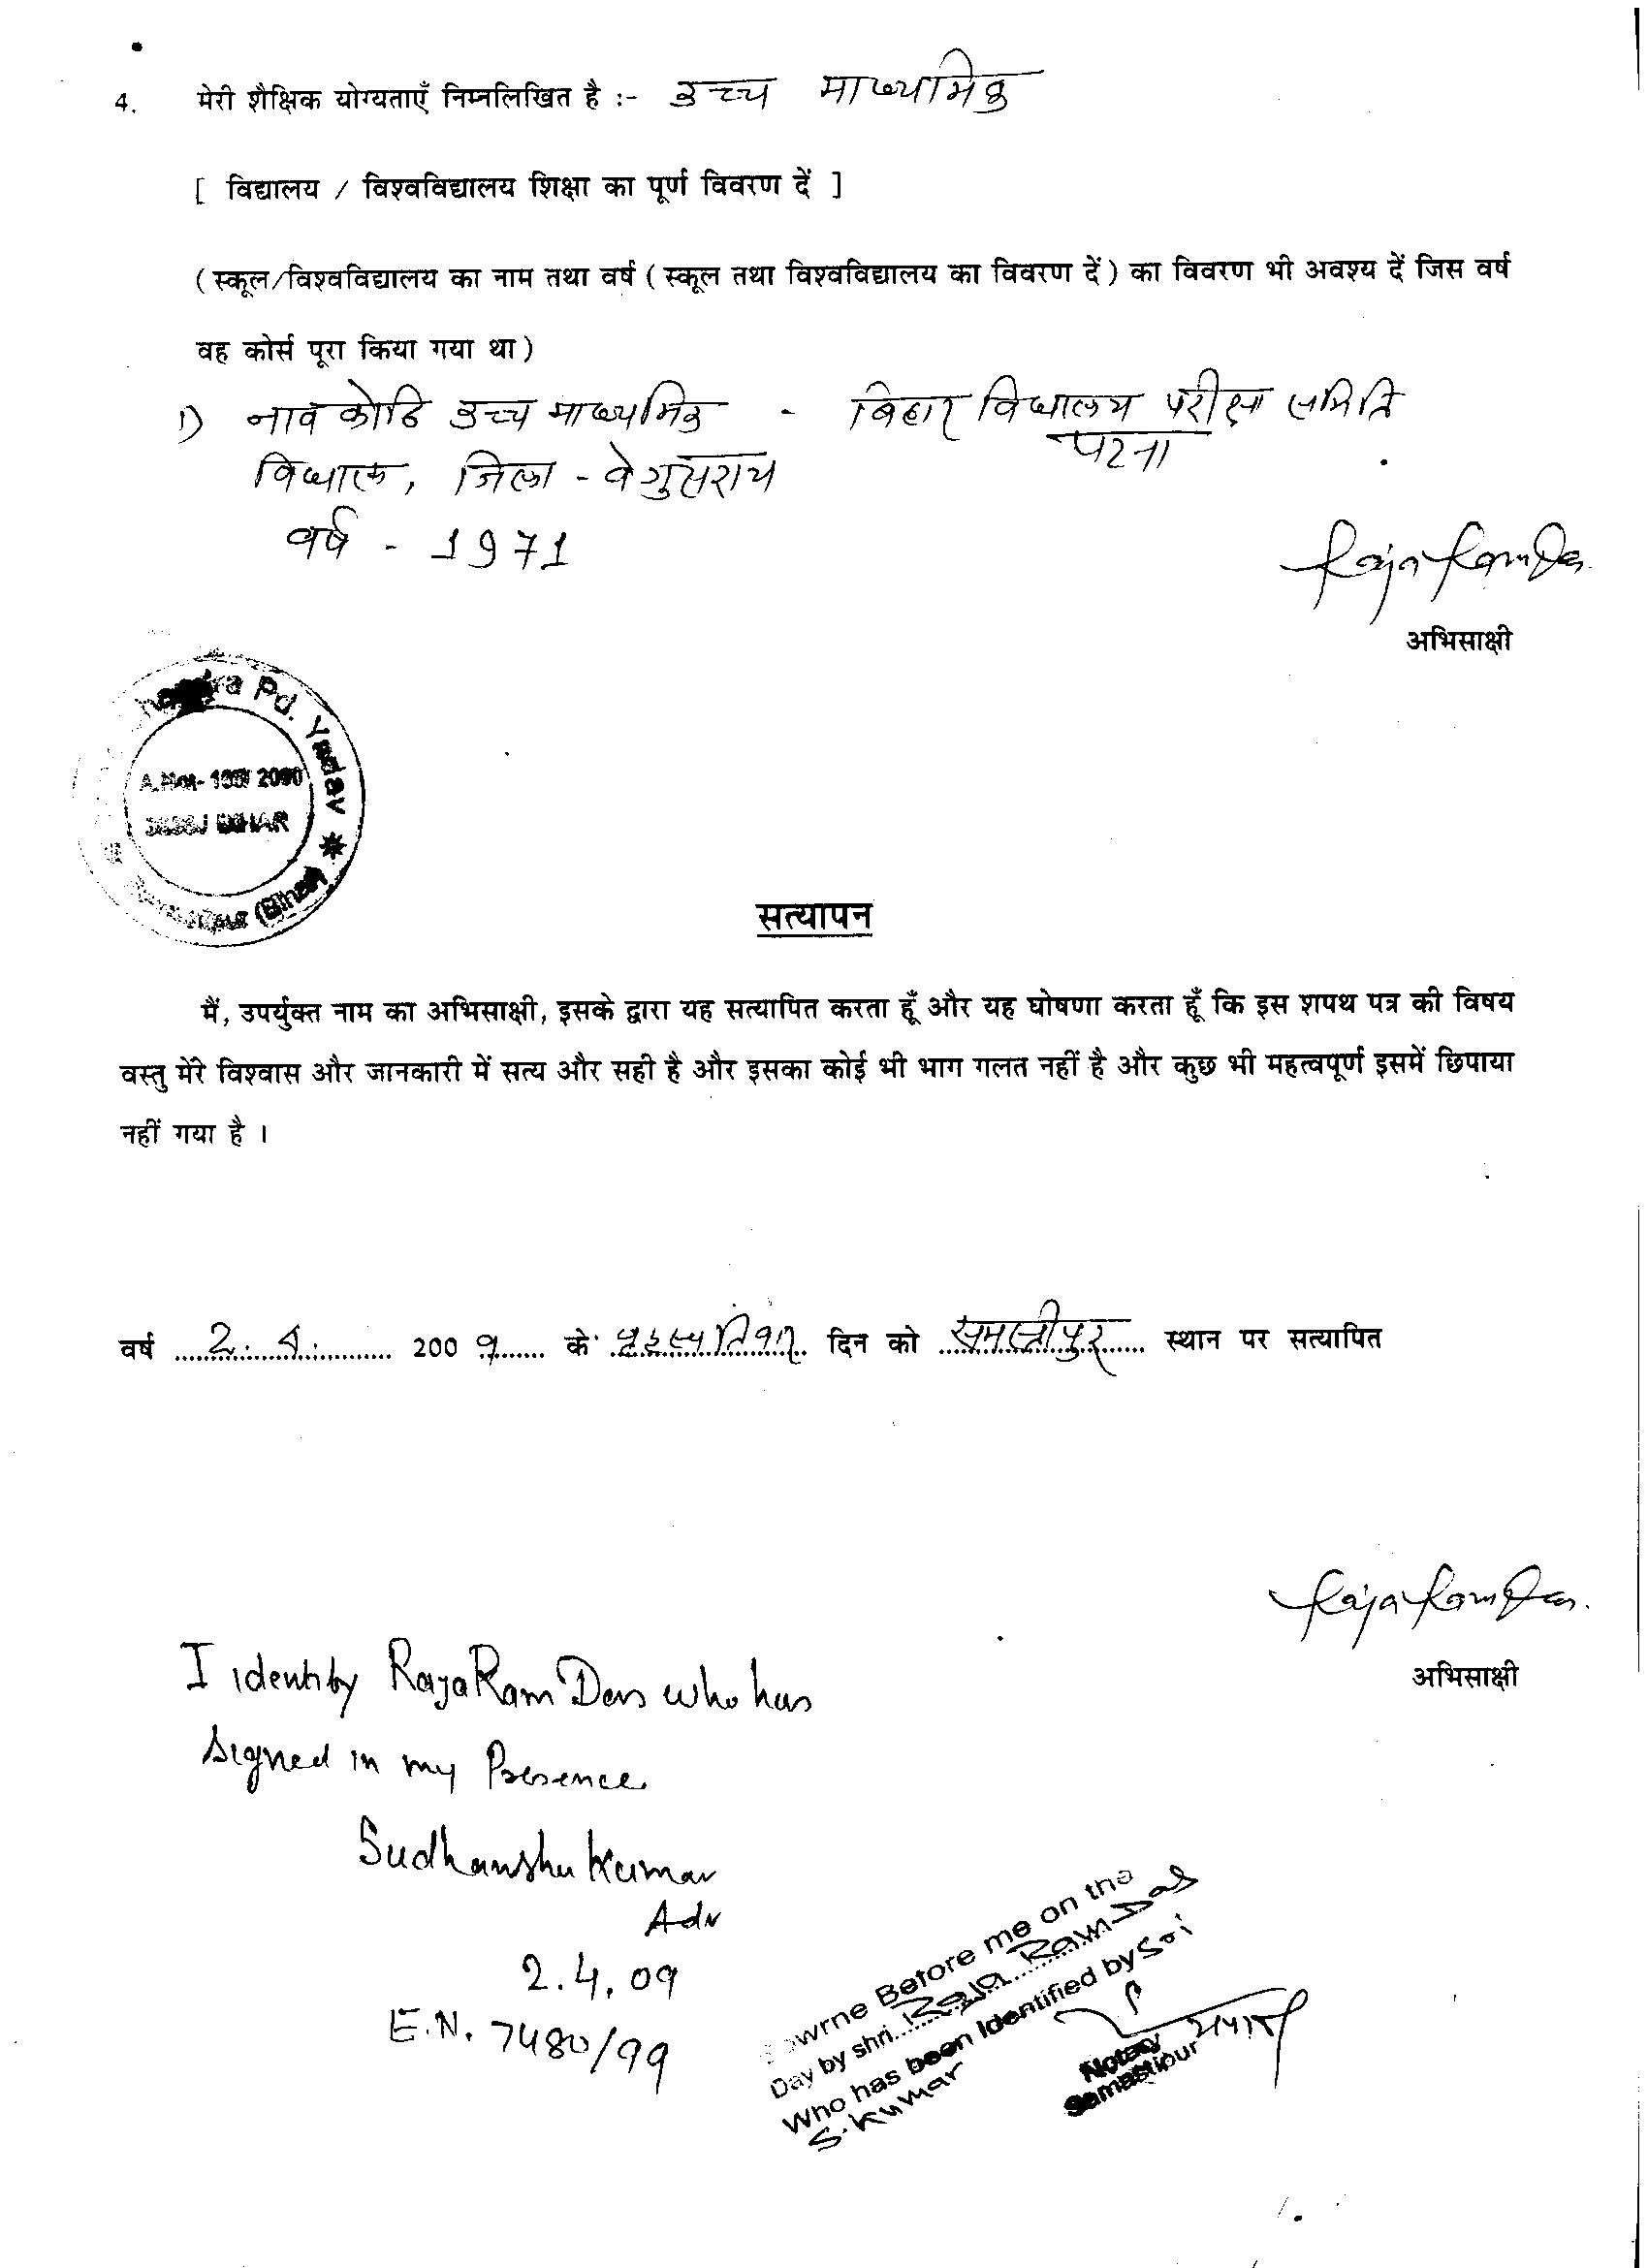 4. मेरी शैक्षिक योग्यताएँ निम्नलिखित है :- उच्च माध्यमिक
[ विद्यालय / विश्वविद्यालय शिक्षा का पूर्ण विवरण दें ]
(स्कूल/विश्वविद्यालय का नाम तथा वर्ष (स्कूल तथा विश्वविद्यालय का विवरण दें) का विवरण भी अवश्य दें जिस वर्ष
वह कोर्स पूरा किया गया था)
1) नाव कोठि उच्च माध्यमिक - बिहार विधालय परीक्षा समिति
पटना
विधालय, जिला - वेगुसराय
वर्ष - 1971
Raja Ram Das
अभिसाक्षी
Pd. Yadav
BIHAR
(Bihar)
सत्यापन
मैं, उपर्युक्त नाम का अभिसाक्षी, इसके द्वारा यह सत्यापित करता हूँ और यह घोषणा करता हूँ कि इस शपथ पत्र की विषय
वस्तु मेरे विश्वास और जानकारी में सत्य और सही है और इसका कोई भी भाग गलत नहीं है और कुछ भी महत्वपूर्ण इसमें छिपाया
नहीं गया है ।
वर्ष 2.4. 2009 के वृहस्पतिवार दिन को समस्तीपुर स्थान पर सत्यापित
Raja Ram Das.
अभिसाक्षी
I identify Raja Ram Das who has
signed in my Presence
Sudhanshu Kumar
Adv
2.4.09
E.N. 7480/99
Sowrne Before me on the
Day by shri Raja Ram Das
Who has been Identified by Sri
S. Kumar
Notary
Samastipur